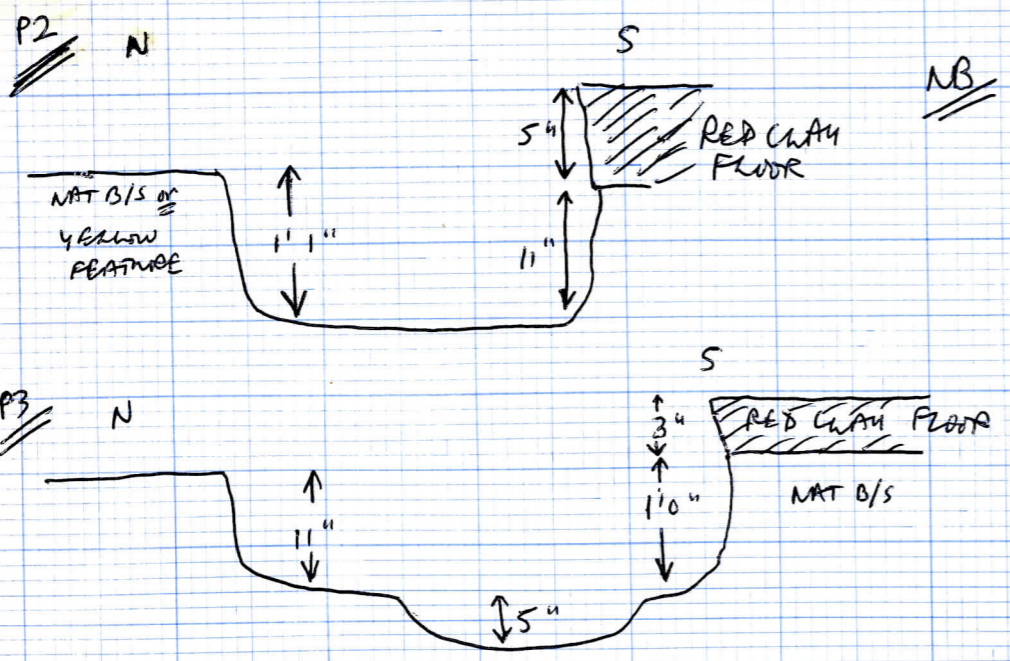 P2 N S NB
5" RED CLAY
FLOOR
NAT B/S or
YELLOW
FEATURE
1' 1"
11"
S
P3 N
3" RED CLAY FLOOR
1'0" NAT B/S
11"
5"